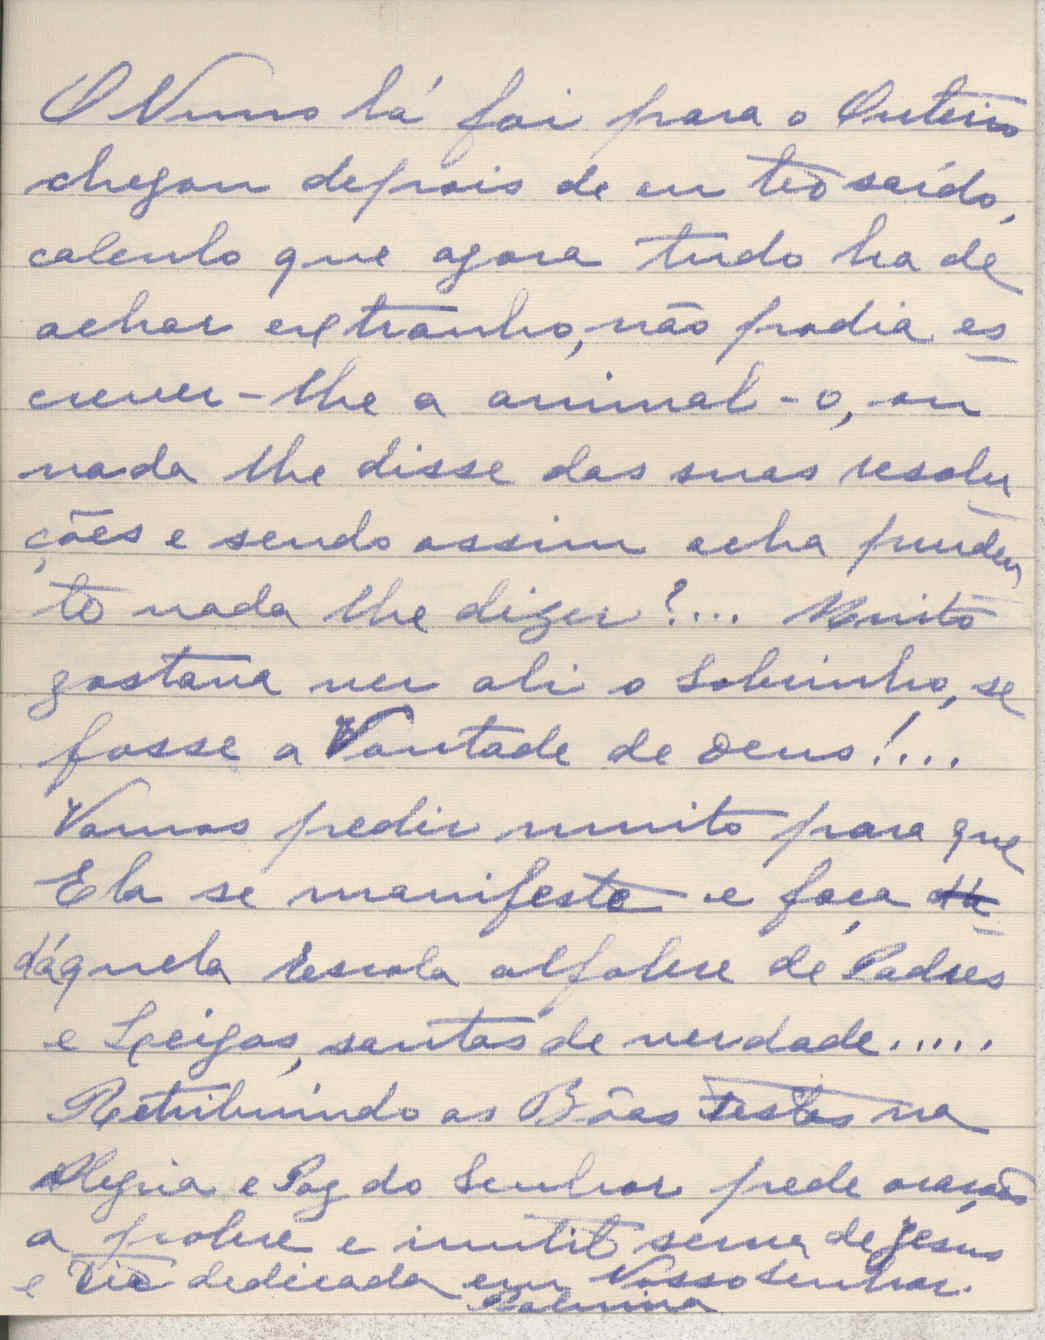 O Nuno lá foi para o Outeiro
chegou depois de eu ter saído,
calculo que agora tudo ha de
achar extranho, não podia es
crever-lhe a animal-o, ou
nada lhe disse das suas resolu
ções e sendo assim acha pruden
te nada lhe dizer?... Muito
gostava ver ali o Sobrinho, se
fosse a Vontade de Deus!...
Vamos pedir muito para que
Ela se manifeste e faça da
dáquela Escola alfobre de Padres
e Leigos, santos de verdade.....
Retribuindo as Bôas Festas na
Alegria e Paz do Senhor pede orações
a pobre e inutil serva de Jesus
e Tia dedicada em Nosso Senhor.